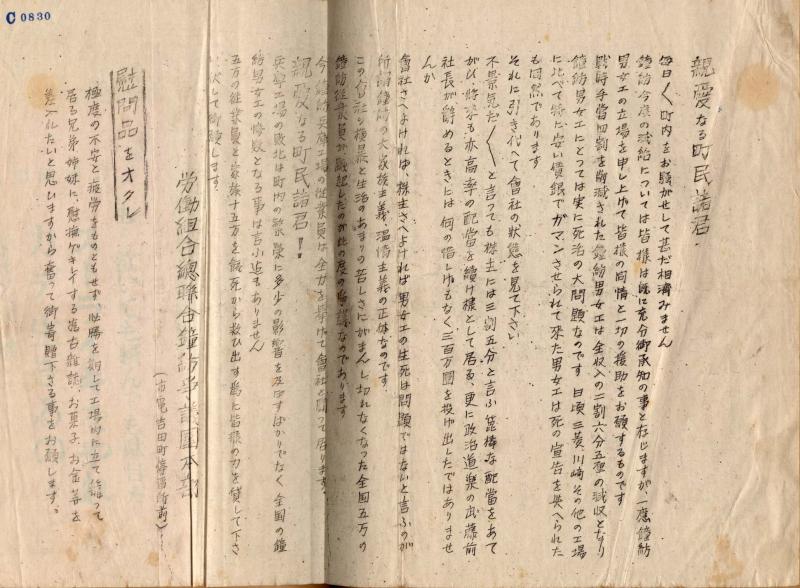 C 0830
親愛なる町民諸君.
毎日〱町内をお騒がせして甚だ相済みません
鐘紡今度の減給については皆様は既に充分御承知の事と存じますが、一應鐘紡
男女工の立場を申し上げて皆様の同情と一切の援助をお願するものです
戦時手當四割を削減された鐘紡男女工は全収入の二割六分五厘の減収となり
鐘紡男女工にとつては実に死活の大問題なのです 日頃三菱、川崎その他の工場
に比べて特に安い賃銀でガマンさせられて来た男女工は死の宣告を與へられた
も同然であります
それに引き代へて會社の状態を見て下さい
不景気だ〱と言つても株主には三割五分と言ふ篦棒な配當をあて
がひ将来も亦高率の配當を續け様として居る、更に政治道楽の武藤前
社長が辞めるときには何の惜しげもなく三百万圓を投げ出したではありませ
んか
會社さへよければ、株主さへよければ男女工の生死は問題ではないと言ふのが
所謂鐘紡の大家族主義、温情主義の正体なのです.
この會社の横暴と生活のあまりの苦しさにがまんし切れなくなつた全国五万の
鐘紡従業員が蹶起したのが此の度の争議なのであります
今鐘紡兵庫工場の従業員は全力を挙げて會社と闘つて居ります.
親愛なる町民諸君!
兵庫工場の敗北は町内の繁栄に多少の影響を及ぼすばかりでなく全国の鐘
紡男女工の惨敗となる事は言ふ迄もありません
五万の従業員と家族十五万を餓死から救ひ出す為に皆様の力を貸して下さ
伏して御願します.
労働組合総聯合鐘紡争議團本部
(市電吉田町停留所前)
慰問品をオクレ
極度の不安と疲労をものともせず、必勝を期して工場内に立て籠つて
居る兄弟姉妹に、慰撫ゲキレイする為古雑誌、お菓子、お金等を
差入れたいと思ひますから奮つて御寄贈下さる事をお願します。